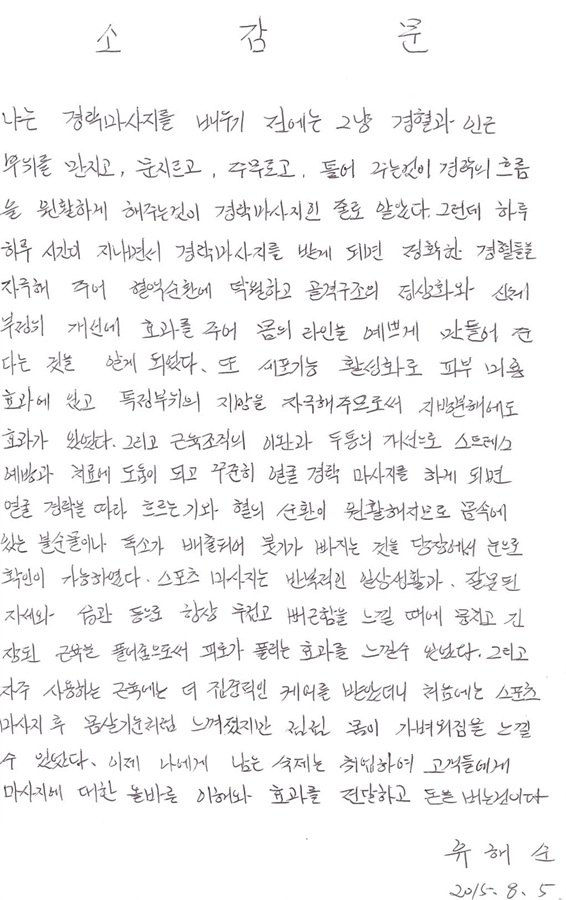 소 감 문
나는 경락마사지를 배우기 전에는 그냥 경혈과 인근
부위를 만지고, 문지르고, 주무르고, 틀어 주는것이 경락의 흐름
을 원활하게 해주는것이 경락마사지인 줄로 알았다. 그런데 하루
하루 시간이 지나면서 경락마사지를 받게 되면 정확한 경혈들을
자극해 주어 혈액순환에 탁월하고 골격구조의 정상화와 신체
부정의 개선에 효과를 주어 몸의 라인을 예쁘게 만들어 준
다는 것을 알게 되었다. 또 세포기능 활성화로 피부 미용
효과에 있고 특정부위의 지방을 자극해주므로써 지방분해에도
효과가 있었다. 그리고 근육조직의 이완과 두통의 개선으로 스트레스
예방과 치료에 도움이 되고 꾸준히 얼굴 경락 마사지를 하게 되면
얼굴 경락을 따라 흐르는 기와 혈의 순환이 원활해지므로 몸속에
있는 불순물이나 독소가 배출되어 붓기가 빠지는 것을 당장에서 눈으로
확인이 가능하였다. 스포츠 마사지는 반복적인 일상생활과, 잘못된
자세와 습관 등으로 항상 무겁고 뻐근함을 느낄 때에 뭉치고 긴
장된 근육을 풀어줌으로써 피로가 풀리는 효과를 느낄수 있었다. 그리고
자주 사용하는 근육에는 더 집중적인 케어를 받았더니 처음에는 스포츠
마사지 후 몸살기운처럼 느껴졌지만 점점 몸이 가벼워짐을 느낄
수 있었다. 이제 나에게 남는 숙제는 취업하여 고객들에게
마사지에 대한 올바른 이해와 효과를 전달하고 돈을 버는것이다
류 해 순
2015. 8. 5.